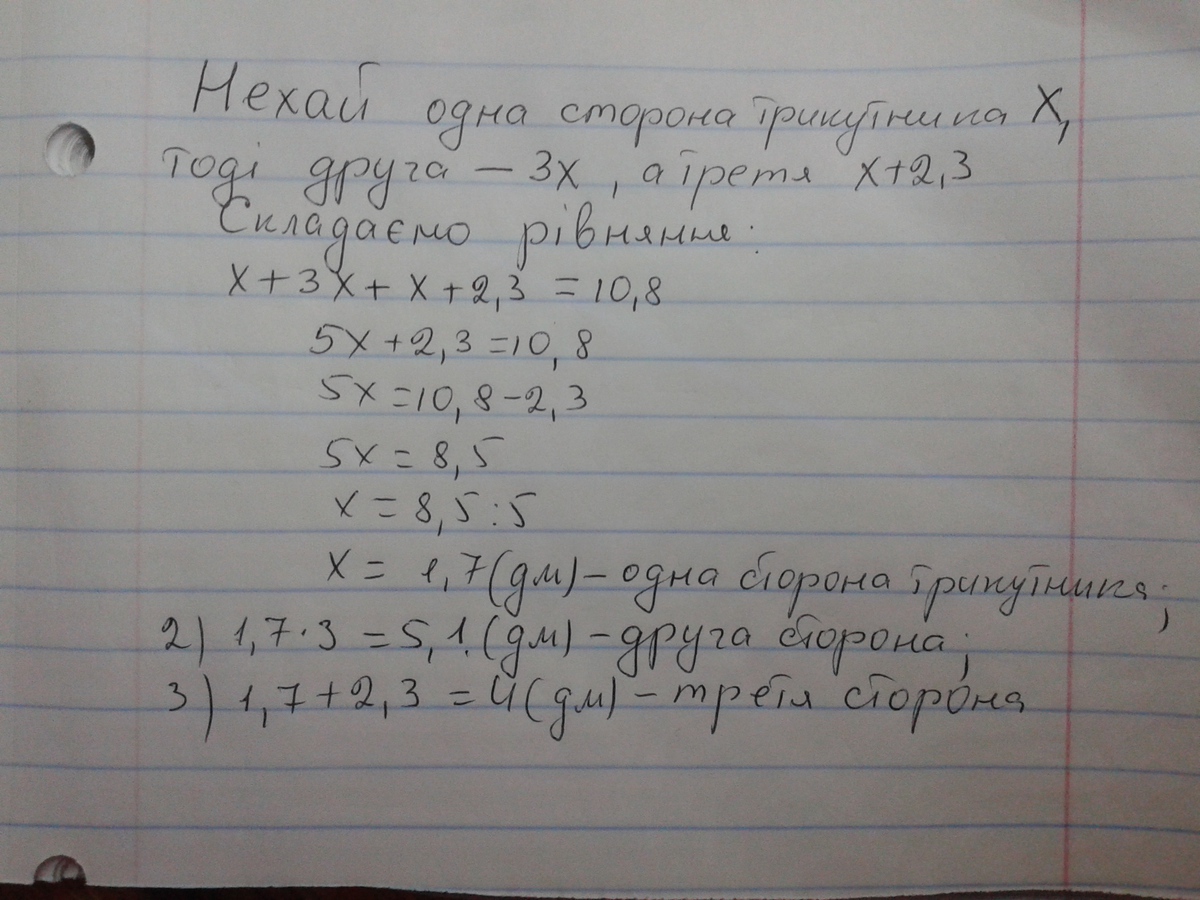 Нехай одна сторона трикутника X,
тоді друга – 3x, а третя x+2,3
Складаємо рівняння:
x+3x+x+2,3=10,8
5x+2,3=10,8
5x=10,8-2,3
5x=8,5
x=8,5:5
x= 1,7(дм)-одна сторона трикутника;
2) 1,7·3=5,1.(дм)-друга сторона;
3) 1,7+2,3=4(дм)-третя сторона